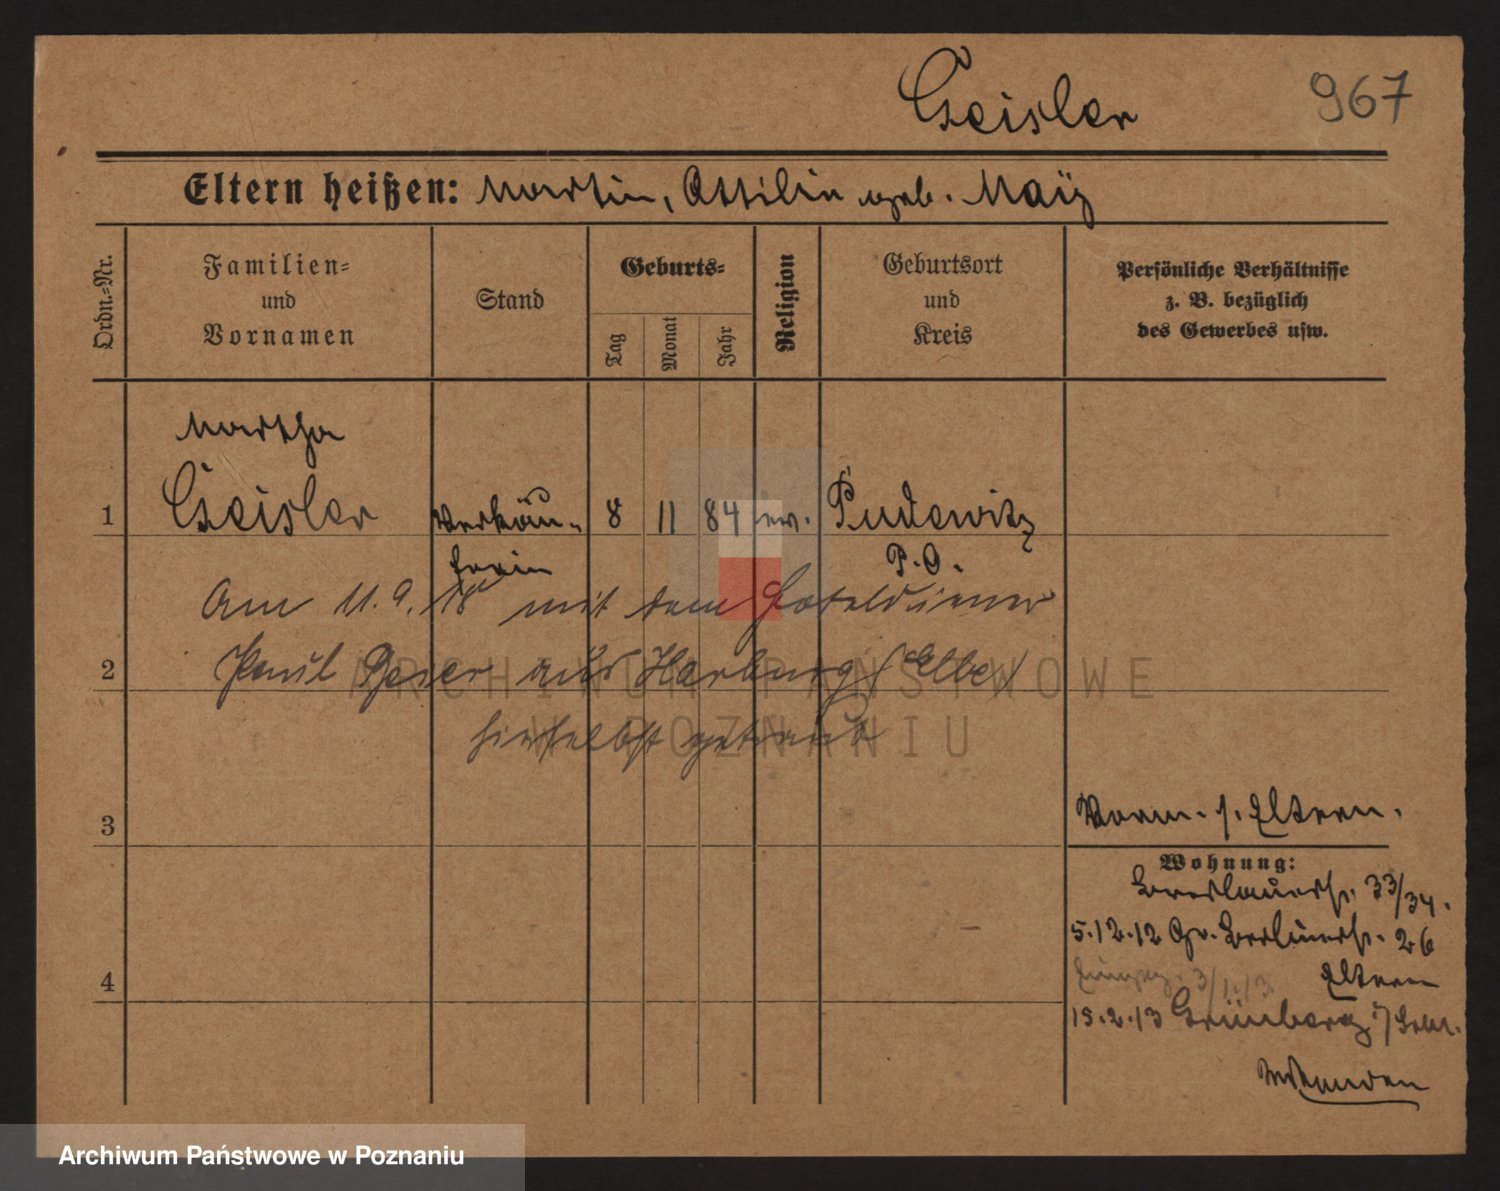 Geisler 967
Eltern heißen: Martin, Ottilie geb. Maÿ
Ordn.-Nr.
Familien- und Vornamen
Stand
Geburts-
Tag
Monat
Jahr
Religion
Geburtsort und Kreis
Persönliche Verhältnisse z. B. bezüglich des Gewerbes usw.
Martha
1 Geisler Verkäu- 8 11 84 ev. Pudewitz
ferin P.O.
Am 11.9.18 mit dem Hoteldiener
2 Paul Geier aus Harburg (Elbe)
hierselbst getraut
3 Vorm. s. Eltern.
Wohnung:
Breslauerstr. 33/34.
5.12.12 Gr. Berlinerstr. 26
Eltern
4
15.2.13 Grünberg i/Schl.
ARCHIWUM PAŃSTWOWE
W POZNANIU
Archiwum Państwowe w Poznaniu